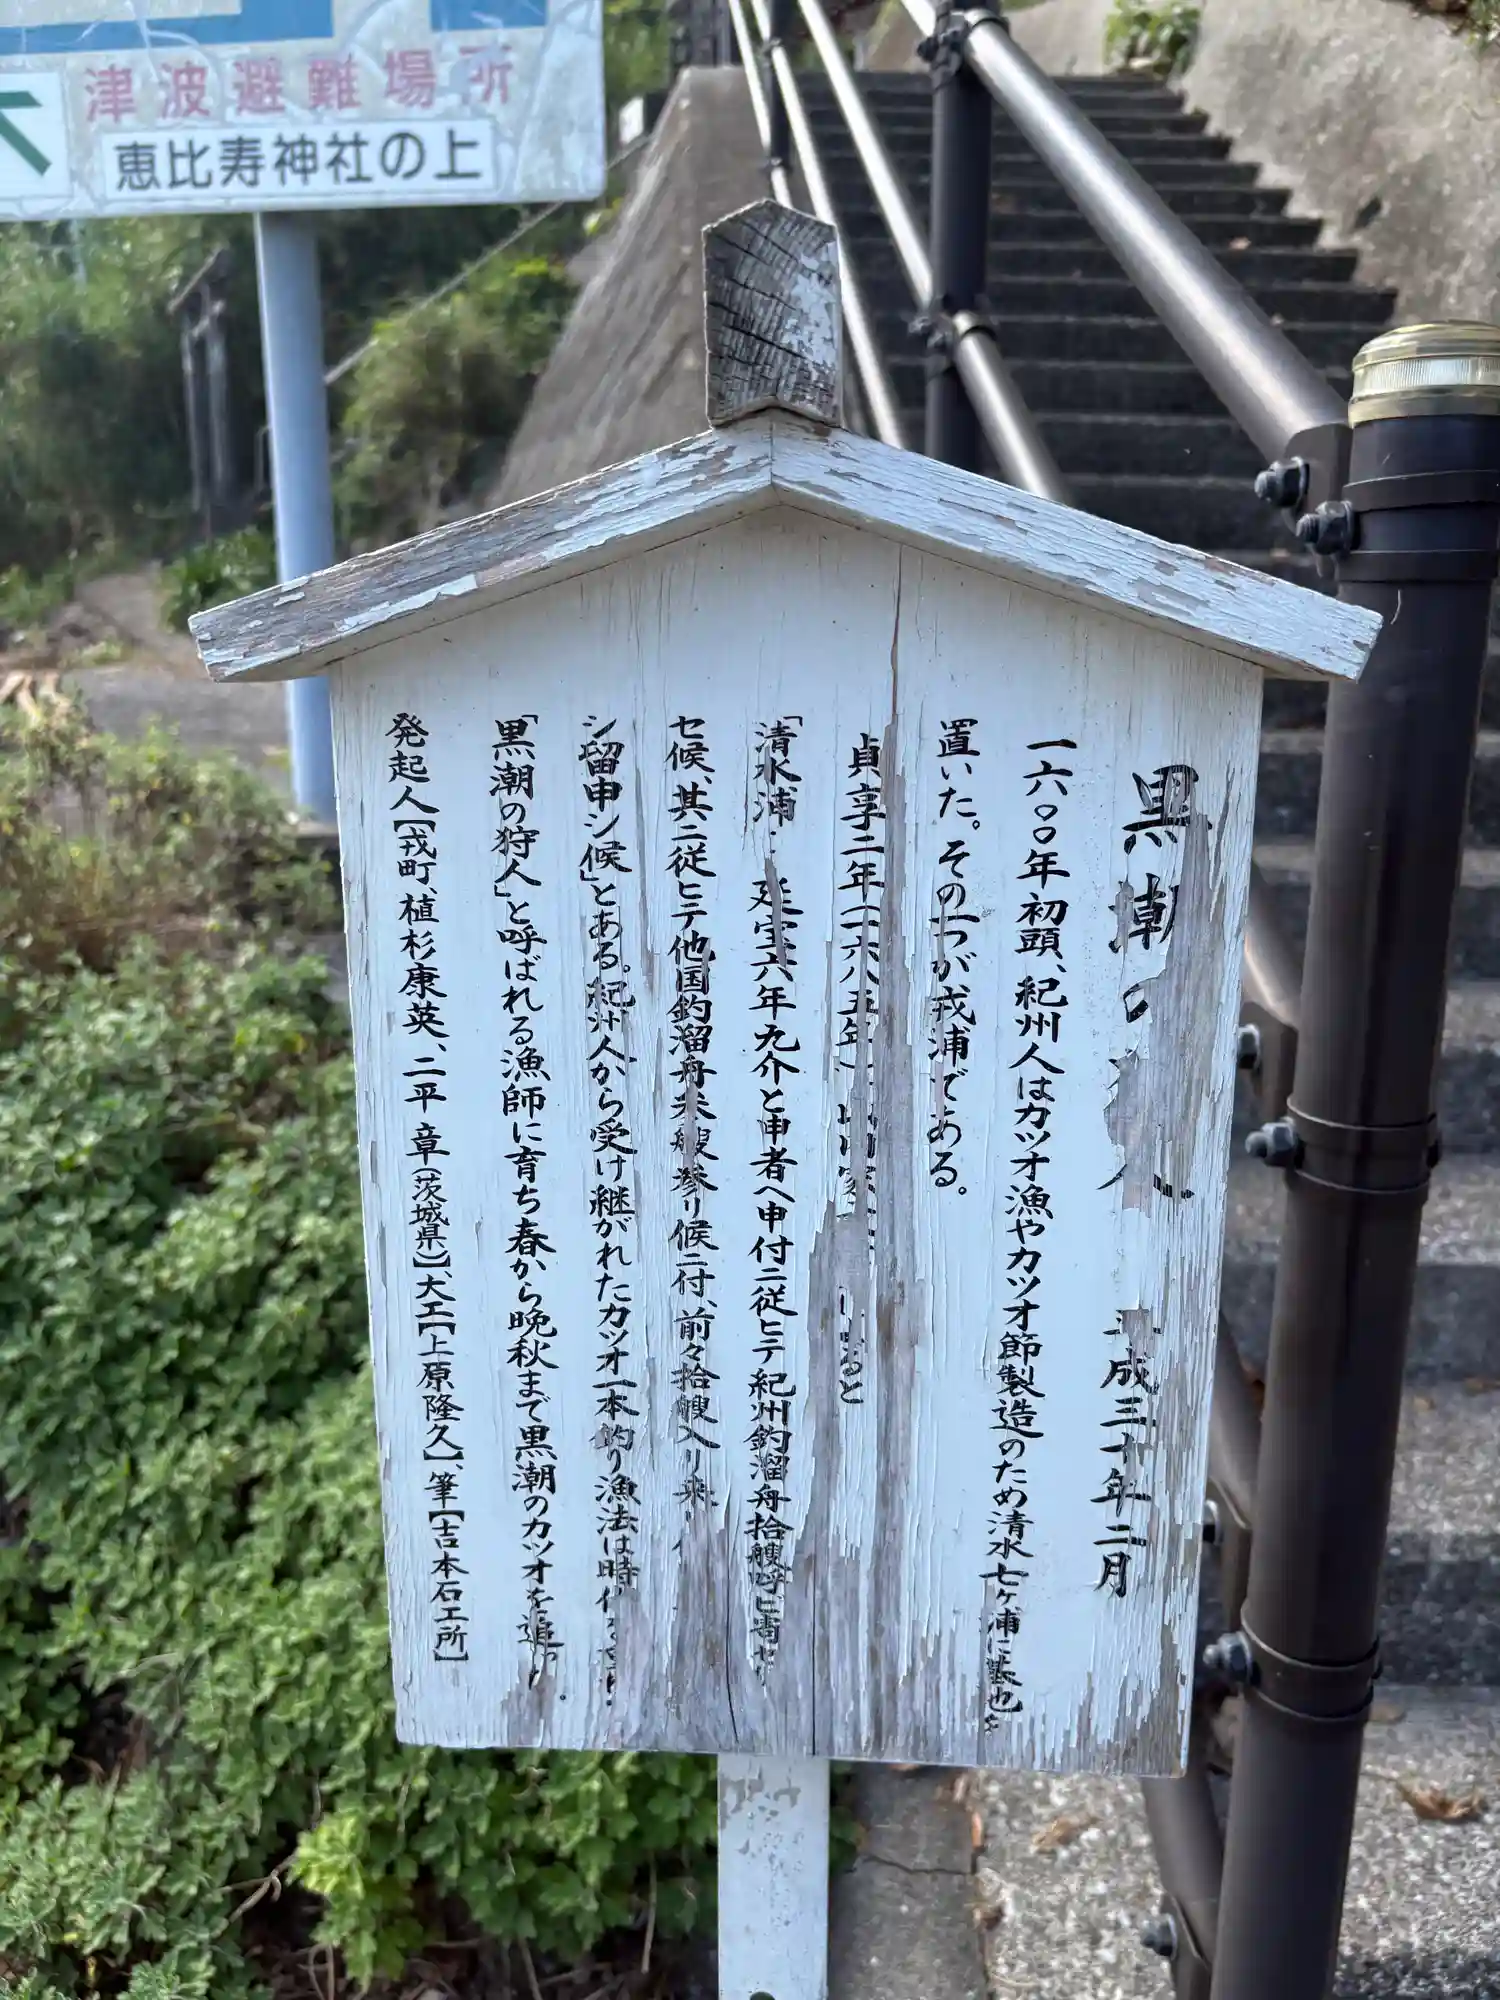 津波避難場所
恵比寿神社の上
黒潮の 人 平成三十年二月
一六〇〇年初頭、紀州人はカツオ漁やカツオ節製造のため清水七ヶ浦に基地を
置いた。その一つが戎浦である。
貞享二年(一六八五年)山内家 ると
「清水浦・延宝六年九介と申者へ申付ニ従ヒテ紀州釣溜舟拾艘呼ヒ寄セ
セ候、其ニ従ヒテ他国釣溜舟 艘参リ候ニ付、前々拾艘入リ来リ
シ留申シ候」とある。紀州人から受け継がれたカツオ一本釣り漁法は時代を
「黒潮の狩人」と呼ばれる漁師に育ち春から晩秋まで黒潮のカツオを追った。
発起人【戎町、植杉康英、二平 章(茨城県)】、大工【上原隆久】、筆【吉本石工所】